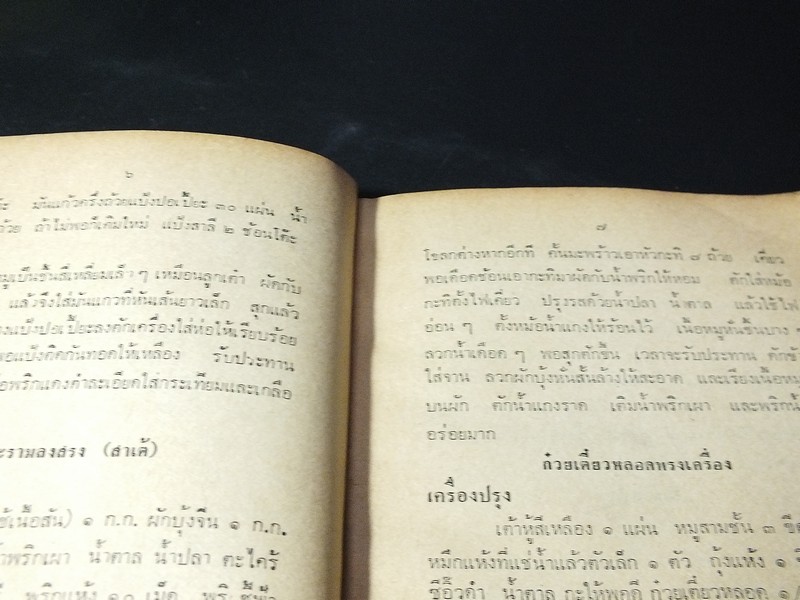 ๖
มันแกวครึ่งถ้วยแป้งปอเปี๊ยะ ๓๐ แผ่น น้ำ
ถ้วย ถ้าไม่พอก็เติมใหม่ แป้งสาลี ๒ ช้อนโต๊ะ
หมูเป็นชิ้นสี่เหลี่ยมเล็ก ๆ เหมือนลูกเต๋า ผัดกับ
แล้วจึงใส่มันแกวที่หั่นเส้นยาวเล็ก สุกแล้ว
แป้งปอเปี๊ยะลงตักเครื่องใส่ห่อให้เรียบร้อย
พอแป้งติดกันทอดให้เหลือง รับประทาน
พริกแดงตำละเอียดใส่กระเทียมและเกลือ
พระรามลงสรง (สาเต้)
เนื้อสัน) ๑ ก.ก. ผักบุ้งจีน ๑ ก.ก.
น้ำพริกเผา น้ำตาล น้ำปลา ตะไคร้
พริกแห้ง ๑๐ เม็ด
๗
โขลกค่างหากอีกที คั้นมะพร้าวเอาหัวกะทิ ๘ ถ้วย เคี่ยว
พอเดือดช้อนเอากะทิมาผัดกับน้ำพริกให้หอม ตักใส่หม้อ
กะทิตั้งไฟเคี่ยว ปรุงรสด้วยน้ำปลา น้ำตาล แล้วใช้ไฟ
อ่อน ๆ ตั้งหม้อน้ำแกงให้ร้อนไว้ เนื้อหมูหั่นชิ้นบาง ๆ
ลวกน้ำเดือด ๆ พอสุกตักขึ้น เวลาจะรับประทาน ตักข้าว
ใส่จาน ลวกผักบุ้งหั่นสั้นล้างให้สะอาด และเรียงเนื้อหมู
บนผัก ตักน้ำแกงราด เติมน้ำพริกเผา และพริกน้ำ
อร่อยมาก
ก๋วยเตี๋ยวหลอดทรงเครื่อง
เครื่องปรุง
เต้าหู้สีเหลือง ๑ แผ่น หมูสามชั้น ๓ ขีด
หมึกแห้งที่แช่น้ำแล้วตัวเล็ก ๑ ตัว กุ้งแห้ง ๑
ซีอิ๊วดำ น้ำตาล กะให้พอดี ก๋วยเตี๋ยวหลอด ๑/